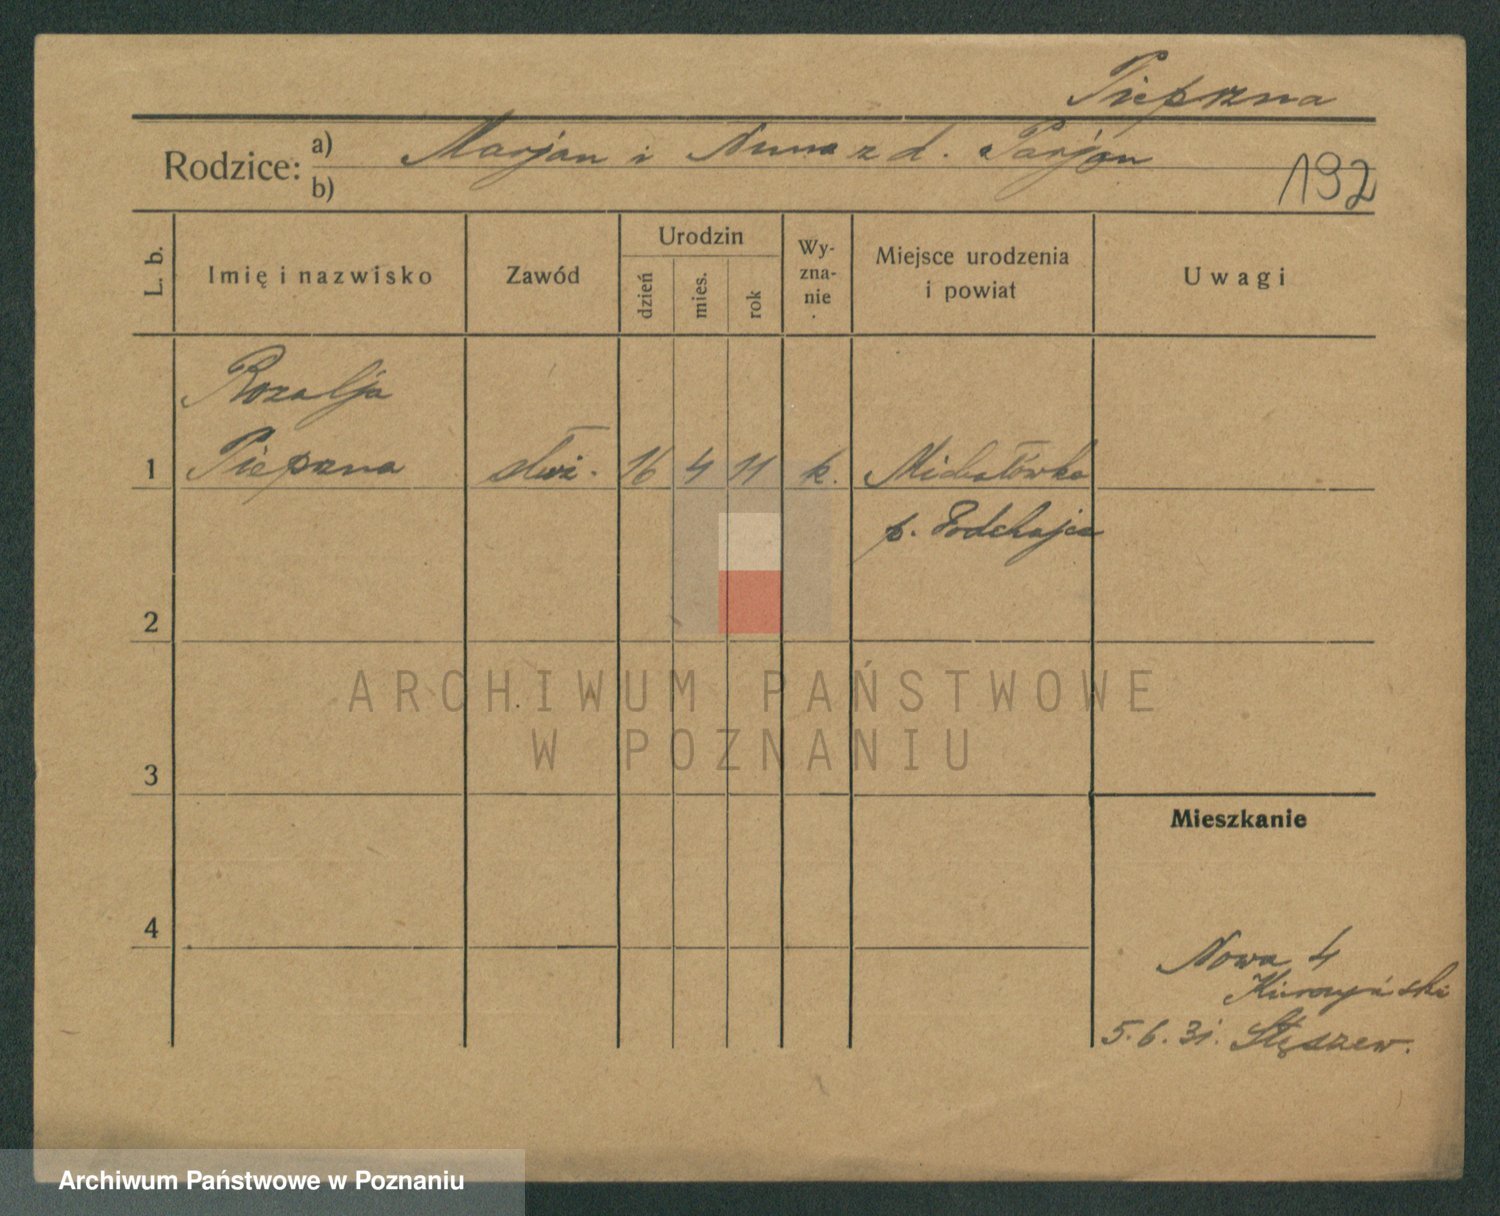 Pieprzna
Rodzice: a) Marjan i Anna z d. Parjan
b)
192
L. b.
Imię i nazwisko
Zawód
Urodzin
dzień
mies.
rok
Wy-
zna-
nie
Miejsce urodzenia
i powiat
Uwagi
Rozalja
1 Pieprzna 16 4 11 k. Michałówka
p. Podhajce
2
3
4
Mieszkanie
Nowa 4
5.6.31. Stęszew.
ARCHIWUM PAŃSTWOWE
W POZNANIU
Archiwum Państwowe w Poznaniu